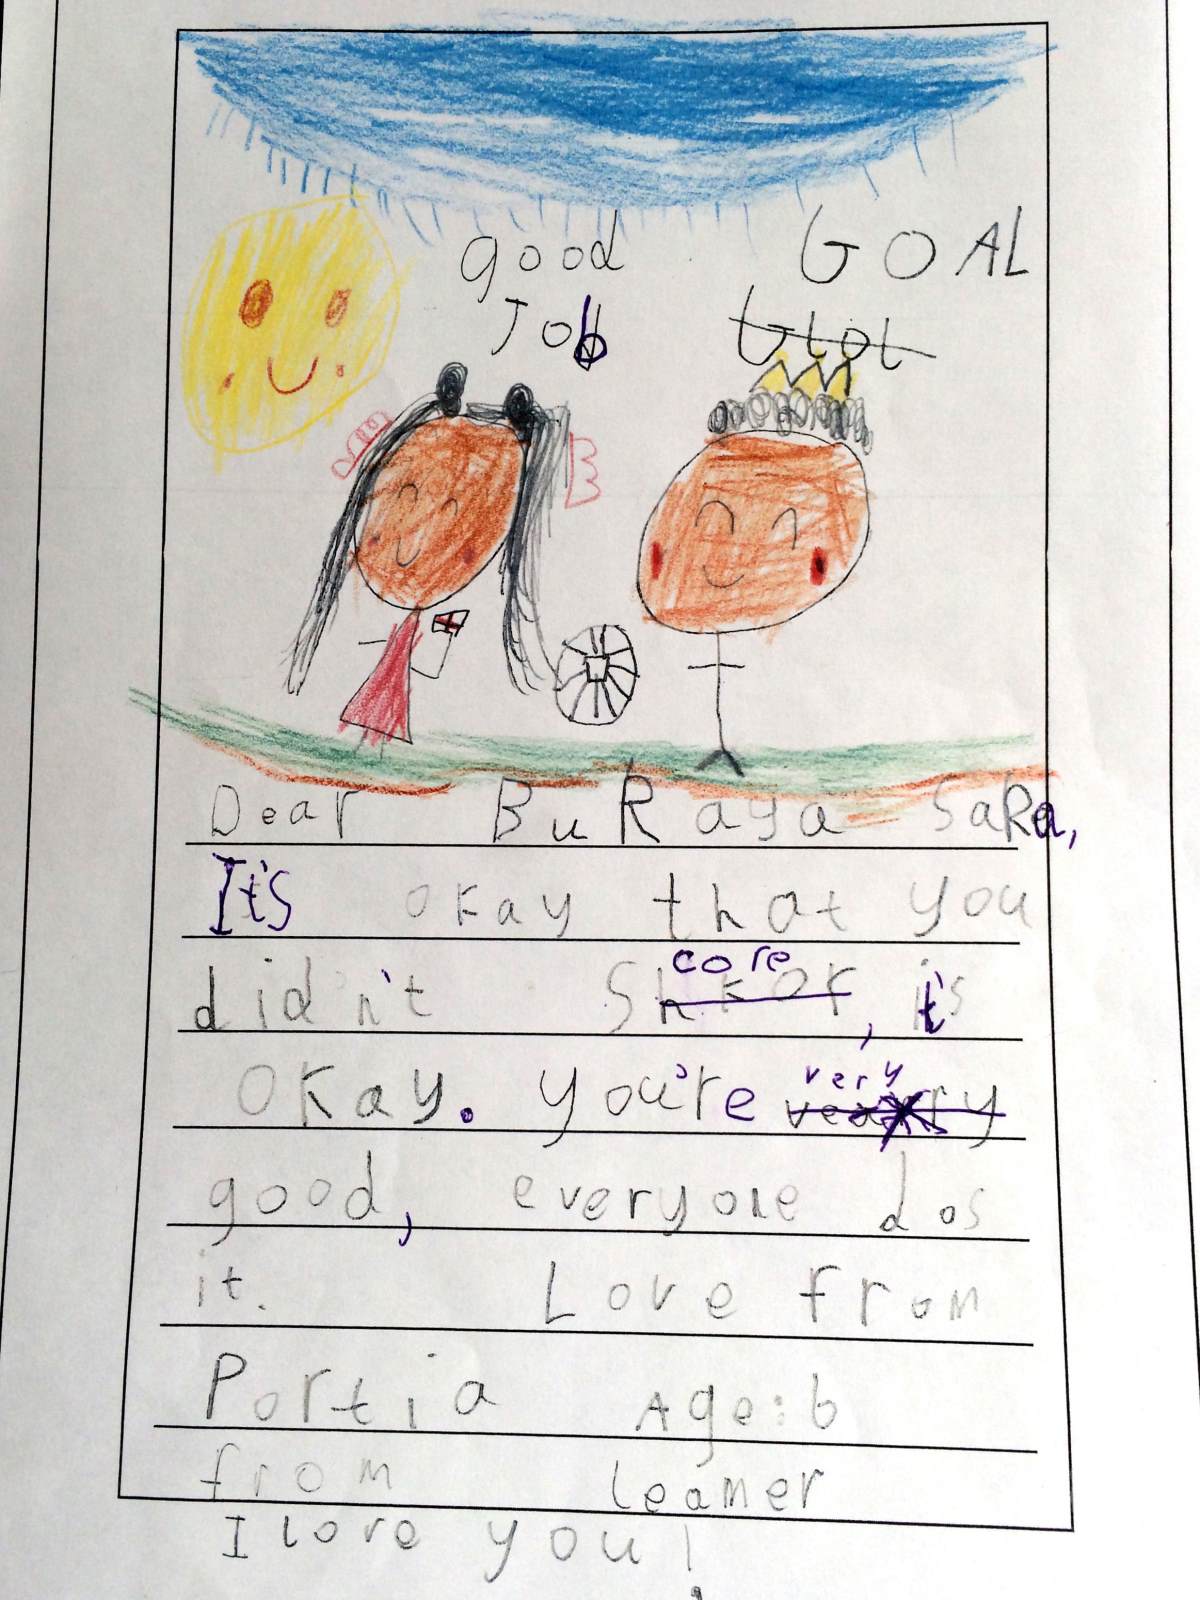 good GOAL
Job Glol
Dear BuKaya SaKa,
It's okay that you
didn't Score, it's
okay. you're very
good, everyone dos
it. Love from
Portia Age: 6
from Leamer
I love you!